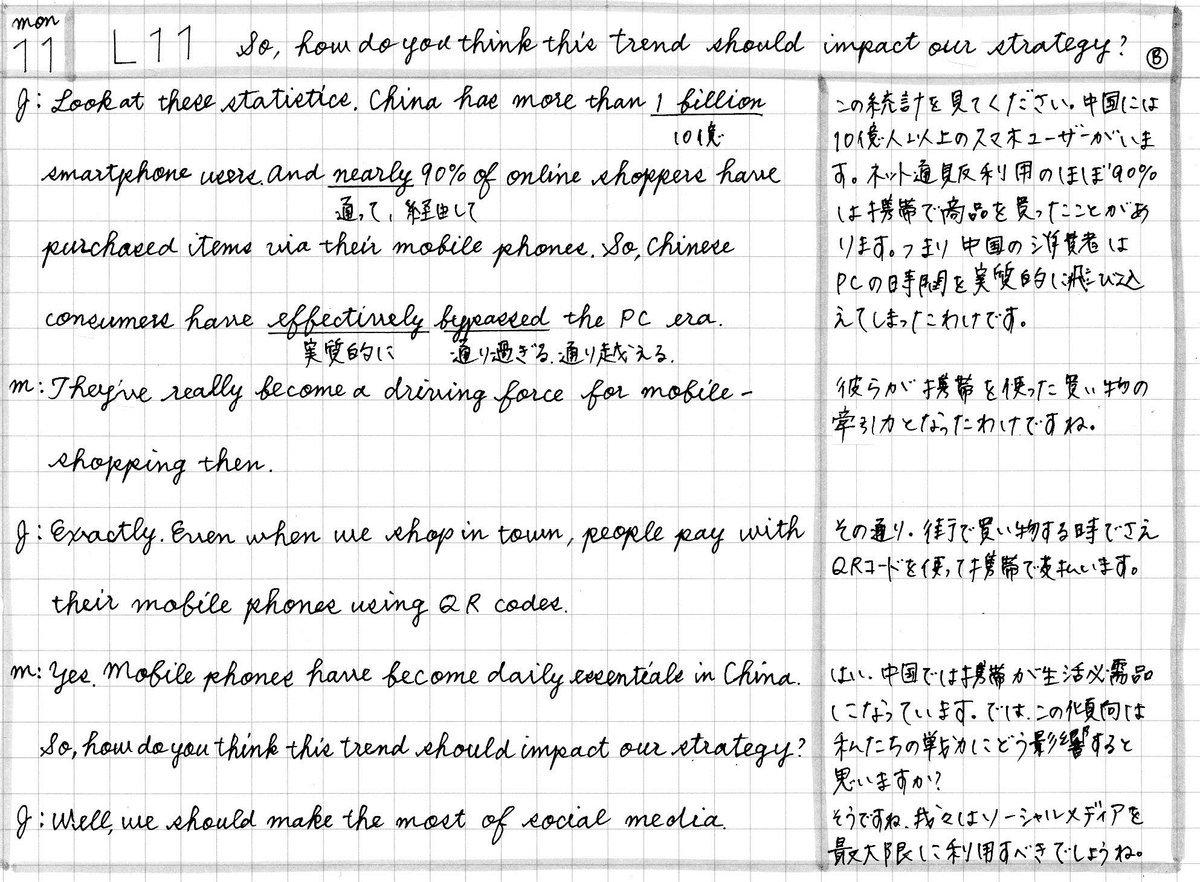 mon
11 L11 So, how do you think this trend should impact our strategy? Ⓑ
J: Look at these statistics. China has more than 1 billion
10億
smartphone users. And nearly 90% of online shoppers have
通って、経由して
purchased items via their mobile phones. So, Chinese
consumers have effectively bypassed the PC era.
実質的に 通り過ぎる、通り越える.
m: They've really become a driving force for mobile-
shopping then.
J: Exactly. Even when we shop in town, people pay with
their mobile phones using QR codes.
m: Yes. Mobile phones have become daily essentials in China.
So, how do you think this trend should impact our strategy?
J: Well, we should make the most of social media.
この統計を見てください。中国には
10億人以上のスマホユーザーがいま
す。ネット通販利用のほぼ90%
は携帯で商品を買ったことがあ
ります。つまり中国の消費者は
PCの時間を実質的に飛び込
えてしまったわけです。
彼らが携帯を使った買い物の
牽引力となったわけですね。
その通り. 街で買い物する時でさえ
QRコードを使って携帯で支払います。
はい. 中国では携帯が生活必需品
になっています。では、この傾向は
私たちの戦略にどう影響すると
思いますか?
そうですね、我々はソーシャルメディアを
最大限に利用すべきでしょうね。